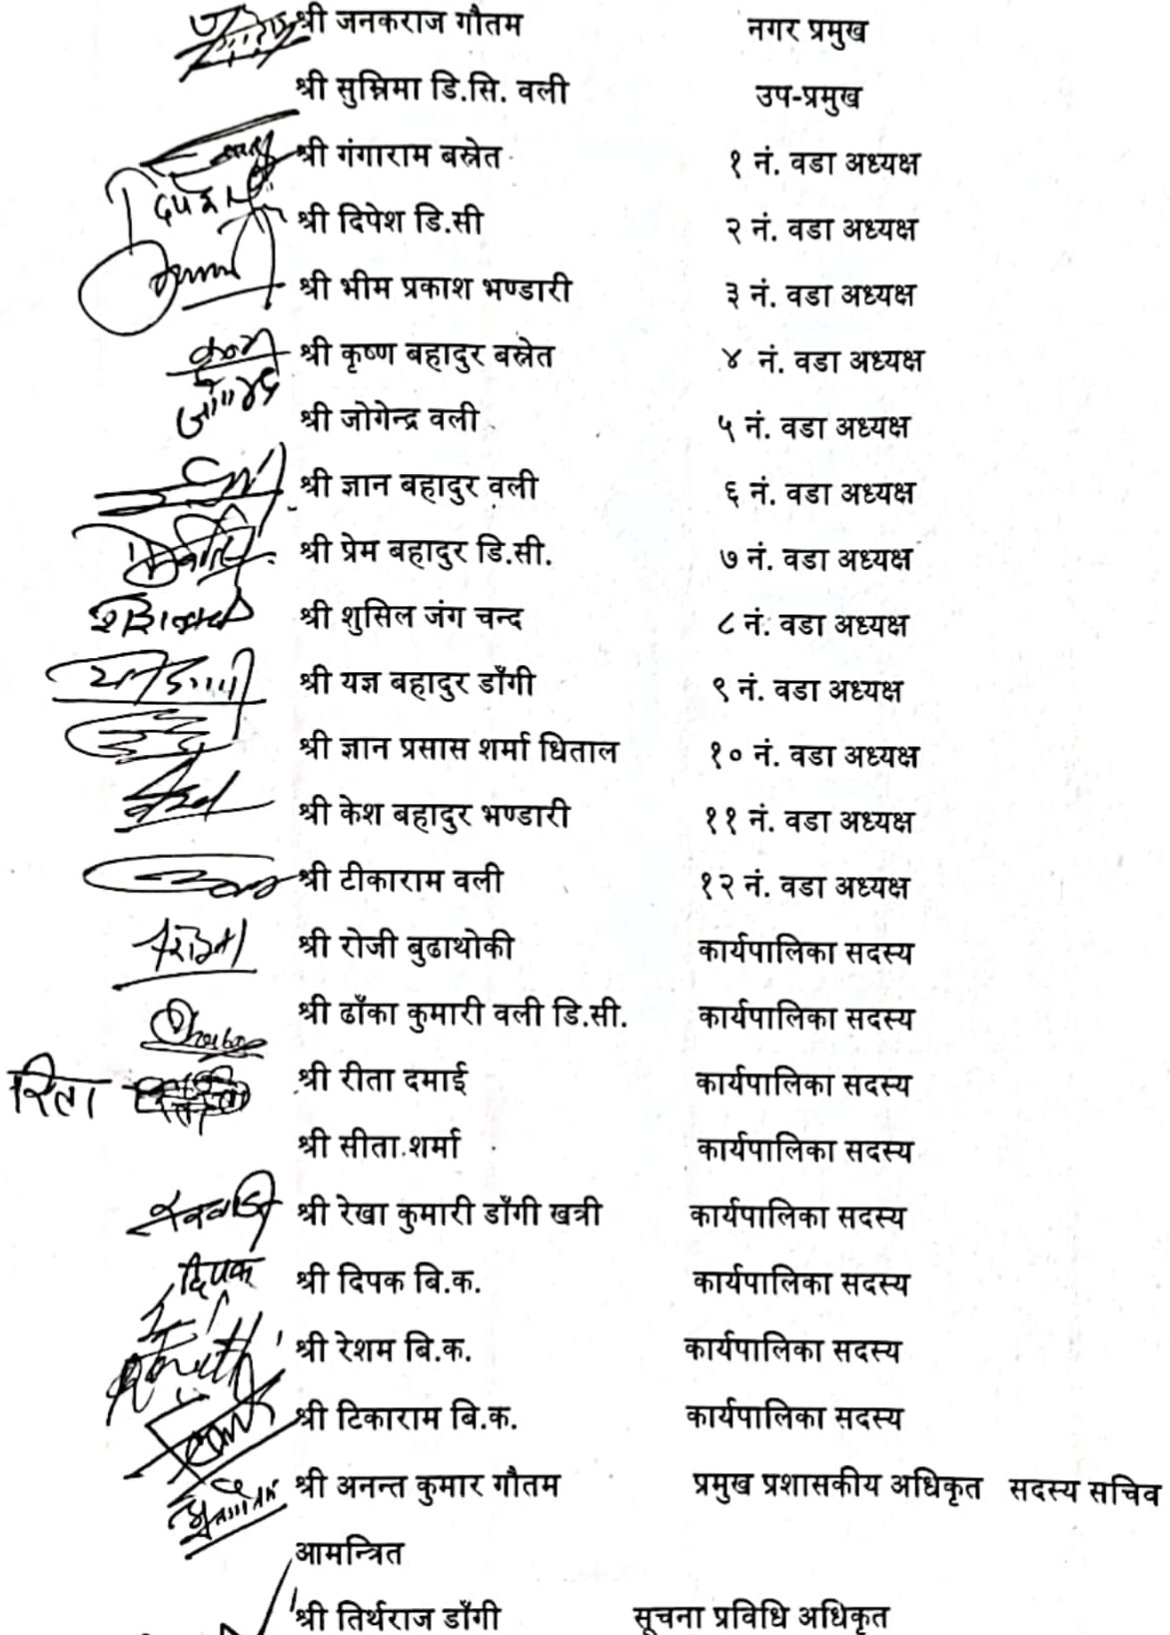 श्री जनकराज गौतम नगर प्रमुख
श्री सुस्मिमा डि.सि. वली उप-प्रमुख
श्री गंगाराम बस्नेत १ नं. वडा अध्यक्ष
श्री दिपेश डि.सी २ नं. वडा अध्यक्ष
श्री भीम प्रकाश भण्डारी ३ नं. वडा अध्यक्ष
श्री कृष्ण बहादुर बस्नेत ४ नं. वडा अध्यक्ष
श्री जोगेन्द्र वली ५ नं. वडा अध्यक्ष
श्री ज्ञान बहादुर वली ६ नं. वडा अध्यक्ष
श्री प्रेम बहादुर डि.सी. ७ नं. वडा अध्यक्ष
श्री शुसिल जंग चन्द ८ नं. वडा अध्यक्ष
श्री यज्ञ बहादुर डाँगी ९ नं. वडा अध्यक्ष
श्री ज्ञान प्रसास शर्मा धिताल १० नं. वडा अध्यक्ष
श्री केश बहादुर भण्डारी ११ नं. वडा अध्यक्ष
श्री टीकाराम वली १२ नं. वडा अध्यक्ष
श्री रोजी बुढाथोकी कार्यपालिका सदस्य
श्री ढाँका कुमारी वली डि.सी. कार्यपालिका सदस्य
रिता श्री रीता दमाई कार्यपालिका सदस्य
श्री सीता शर्मा कार्यपालिका सदस्य
श्री रेखा कुमारी डाँगी खत्री कार्यपालिका सदस्य
दिपक श्री दिपक बि.क. कार्यपालिका सदस्य
श्री रेशम बि.क. कार्यपालिका सदस्य
श्री टिकाराम बि.क. कार्यपालिका सदस्य
श्री अनन्त कुमार गौतम प्रमुख प्रशासकीय अधिकृत सदस्य सचिव
आमन्त्रित
श्री तिर्थराज डाँगी सूचना प्रविधि अधिकृत